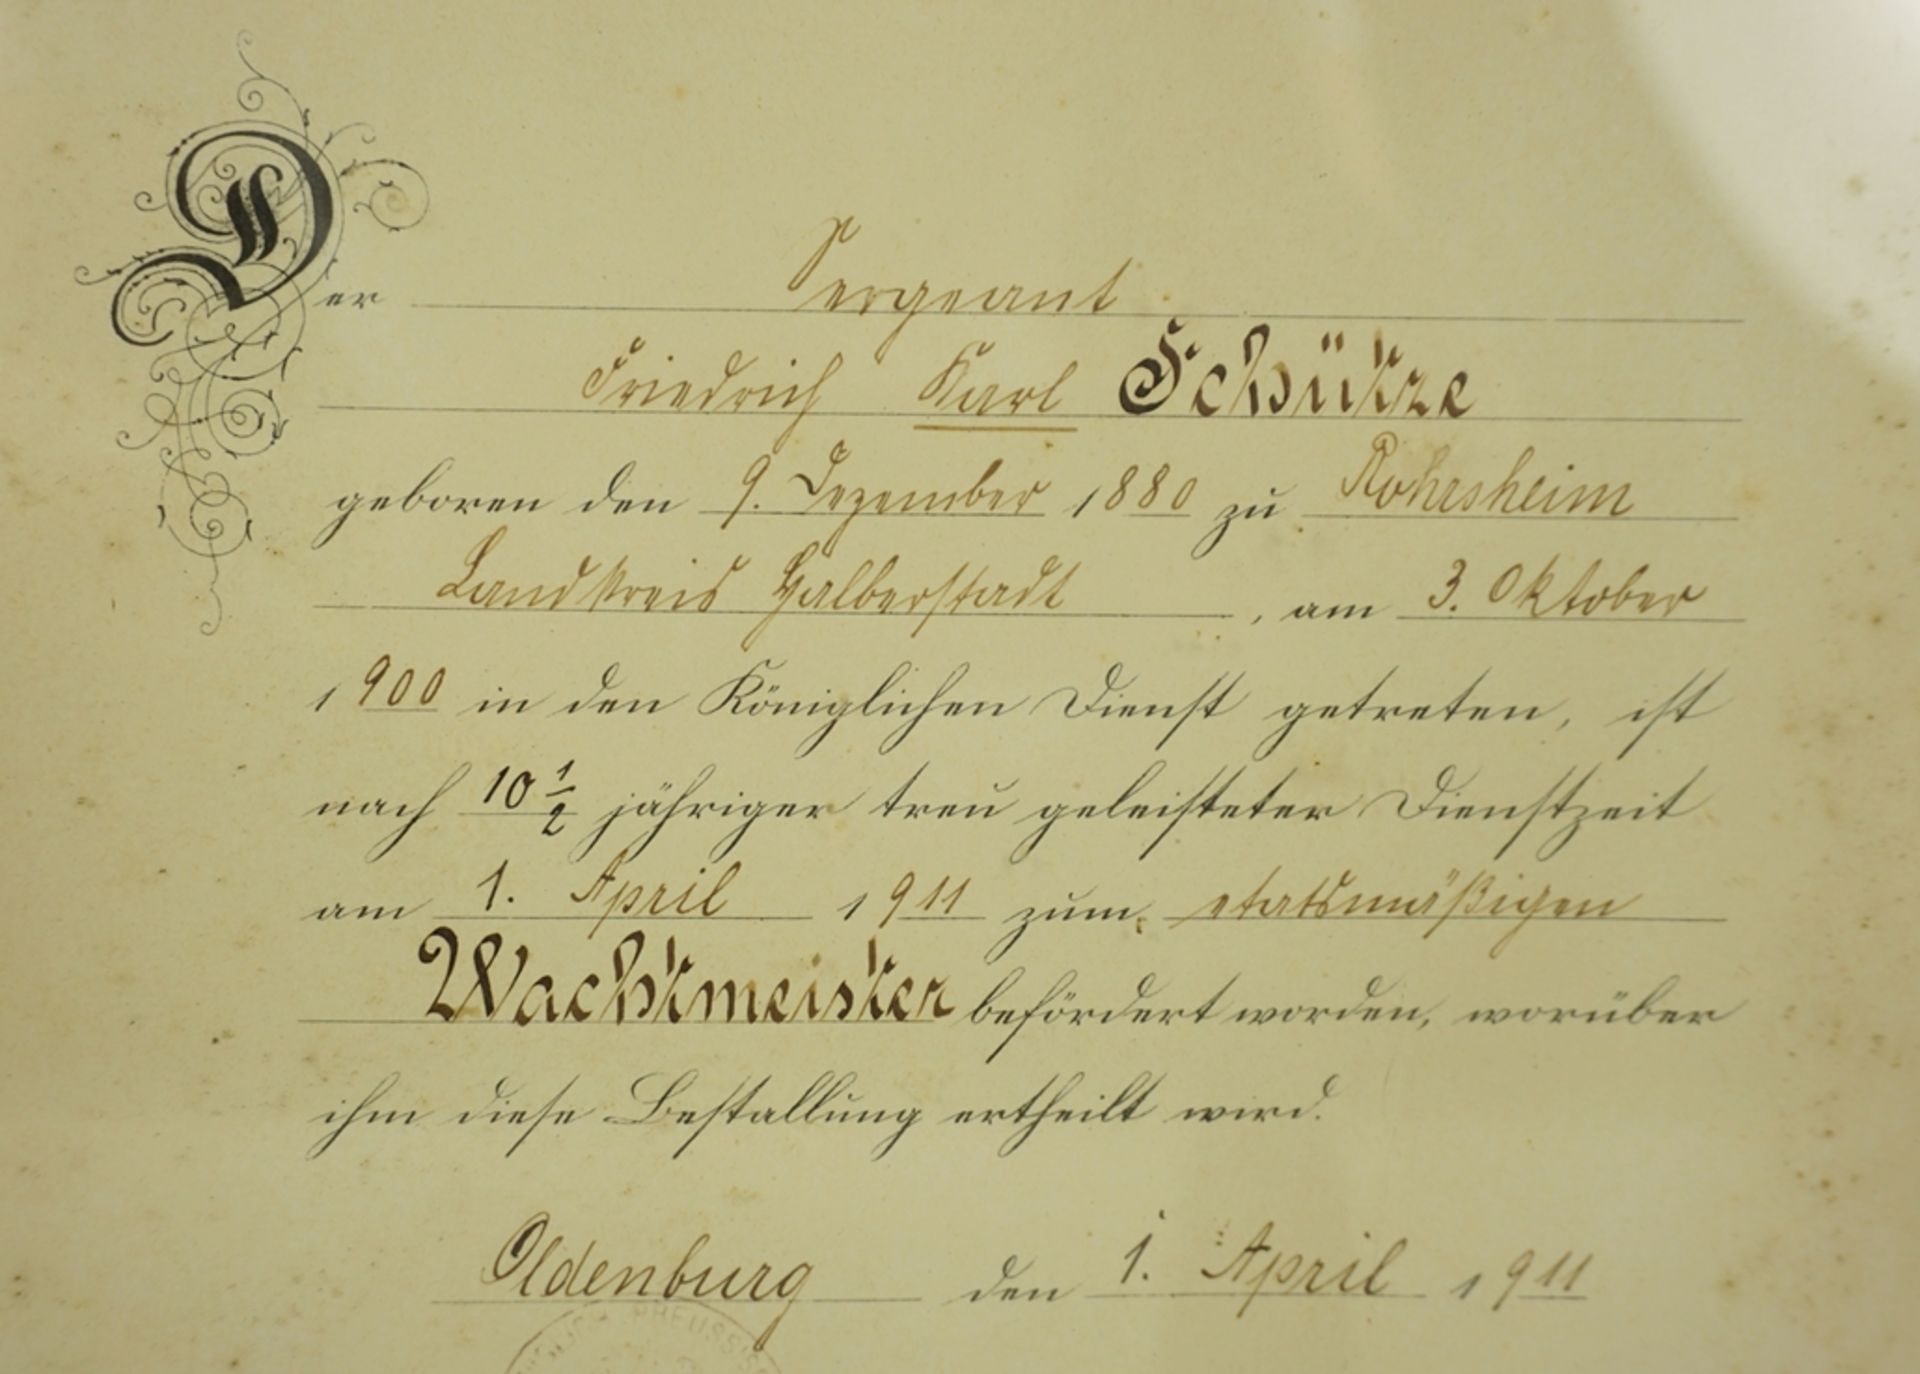 Der Sergeant
Friedrich Karl Schütze
geboren den 9. Dezember 1880 zu Rohrsheim
Landkreis Halberstadt, am 3. Oktober
1900 in den Königlichen Dienst getreten, ist
nach 10 1/2 jähriger treu geleisteter Dienstzeit
am 1. April 1911 zum etatsmäßigen
Wachtmeister befördert worden, worüber
ihm diese Bestallung ertheilt wird.
Oldenburg den 1. April 1911